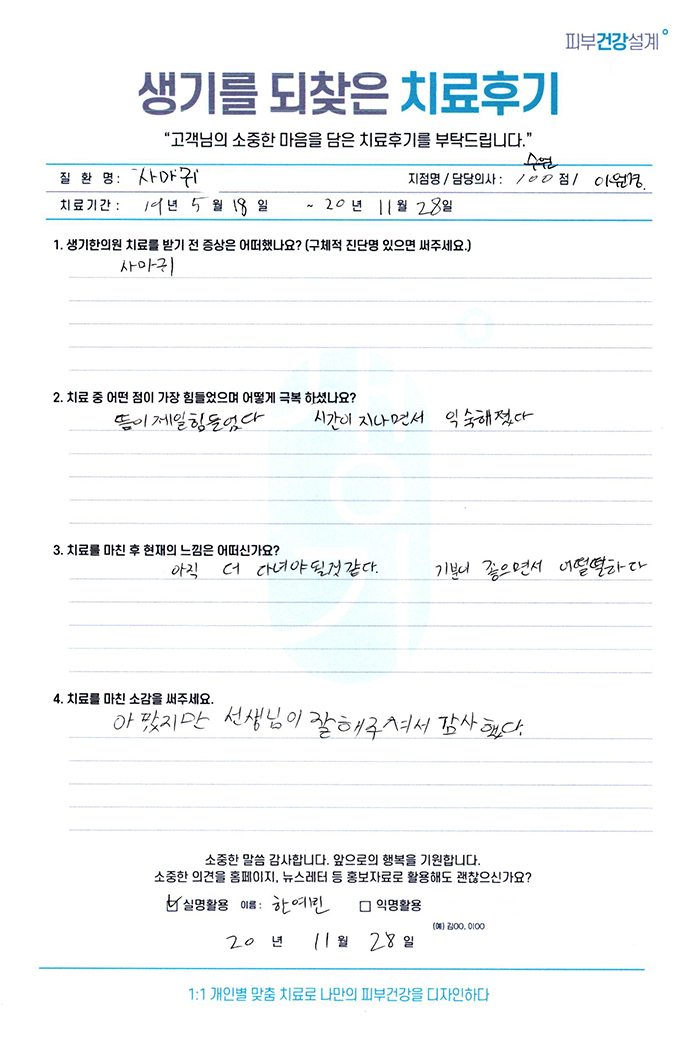 피부건강설계
생기를 되찾은 치료후기
"고객님의 소중한 마음을 담은 치료후기를 부탁드립니다."
수원
질 환 명 : 사마귀 지점명 / 담당의사 : 점 / 이원경.
치료기간 : 19년 5월 18일 ~ 20년 11월 28일
1. 생기한의원 치료를 받기 전 증상은 어떠했나요? (구체적 진단명 있으면 써주세요.)
사마귀
2. 치료 중 어떤 점이 가장 힘들었으며 어떻게 극복 하셨나요?
뜸이 제일힘들었다 시간이 지나면서 익숙해졌다
3. 치료를 마친 후 현재의 느낌은 어떠신가요?
아직 더 다녀야 될것 같다. 기분이 좋으면서 어떨떨하다
4. 치료를 마친 소감을 써주세요.
아팠지만 선생님이 잘해주셔서 감사했다.
소중한 말씀 감사합니다. 앞으로의 행복을 기원합니다.
소중한 의견을 홈페이지, 뉴스레터 등 홍보자료로 활용해도 괜찮으신가요?
실명활용 이름 : 한예린 익명활용
(예) 김OO, 이OO
20 년 11 월 28 일
1:1 개인별 맞춤 치료로 나만의 피부건강을 디자인하다